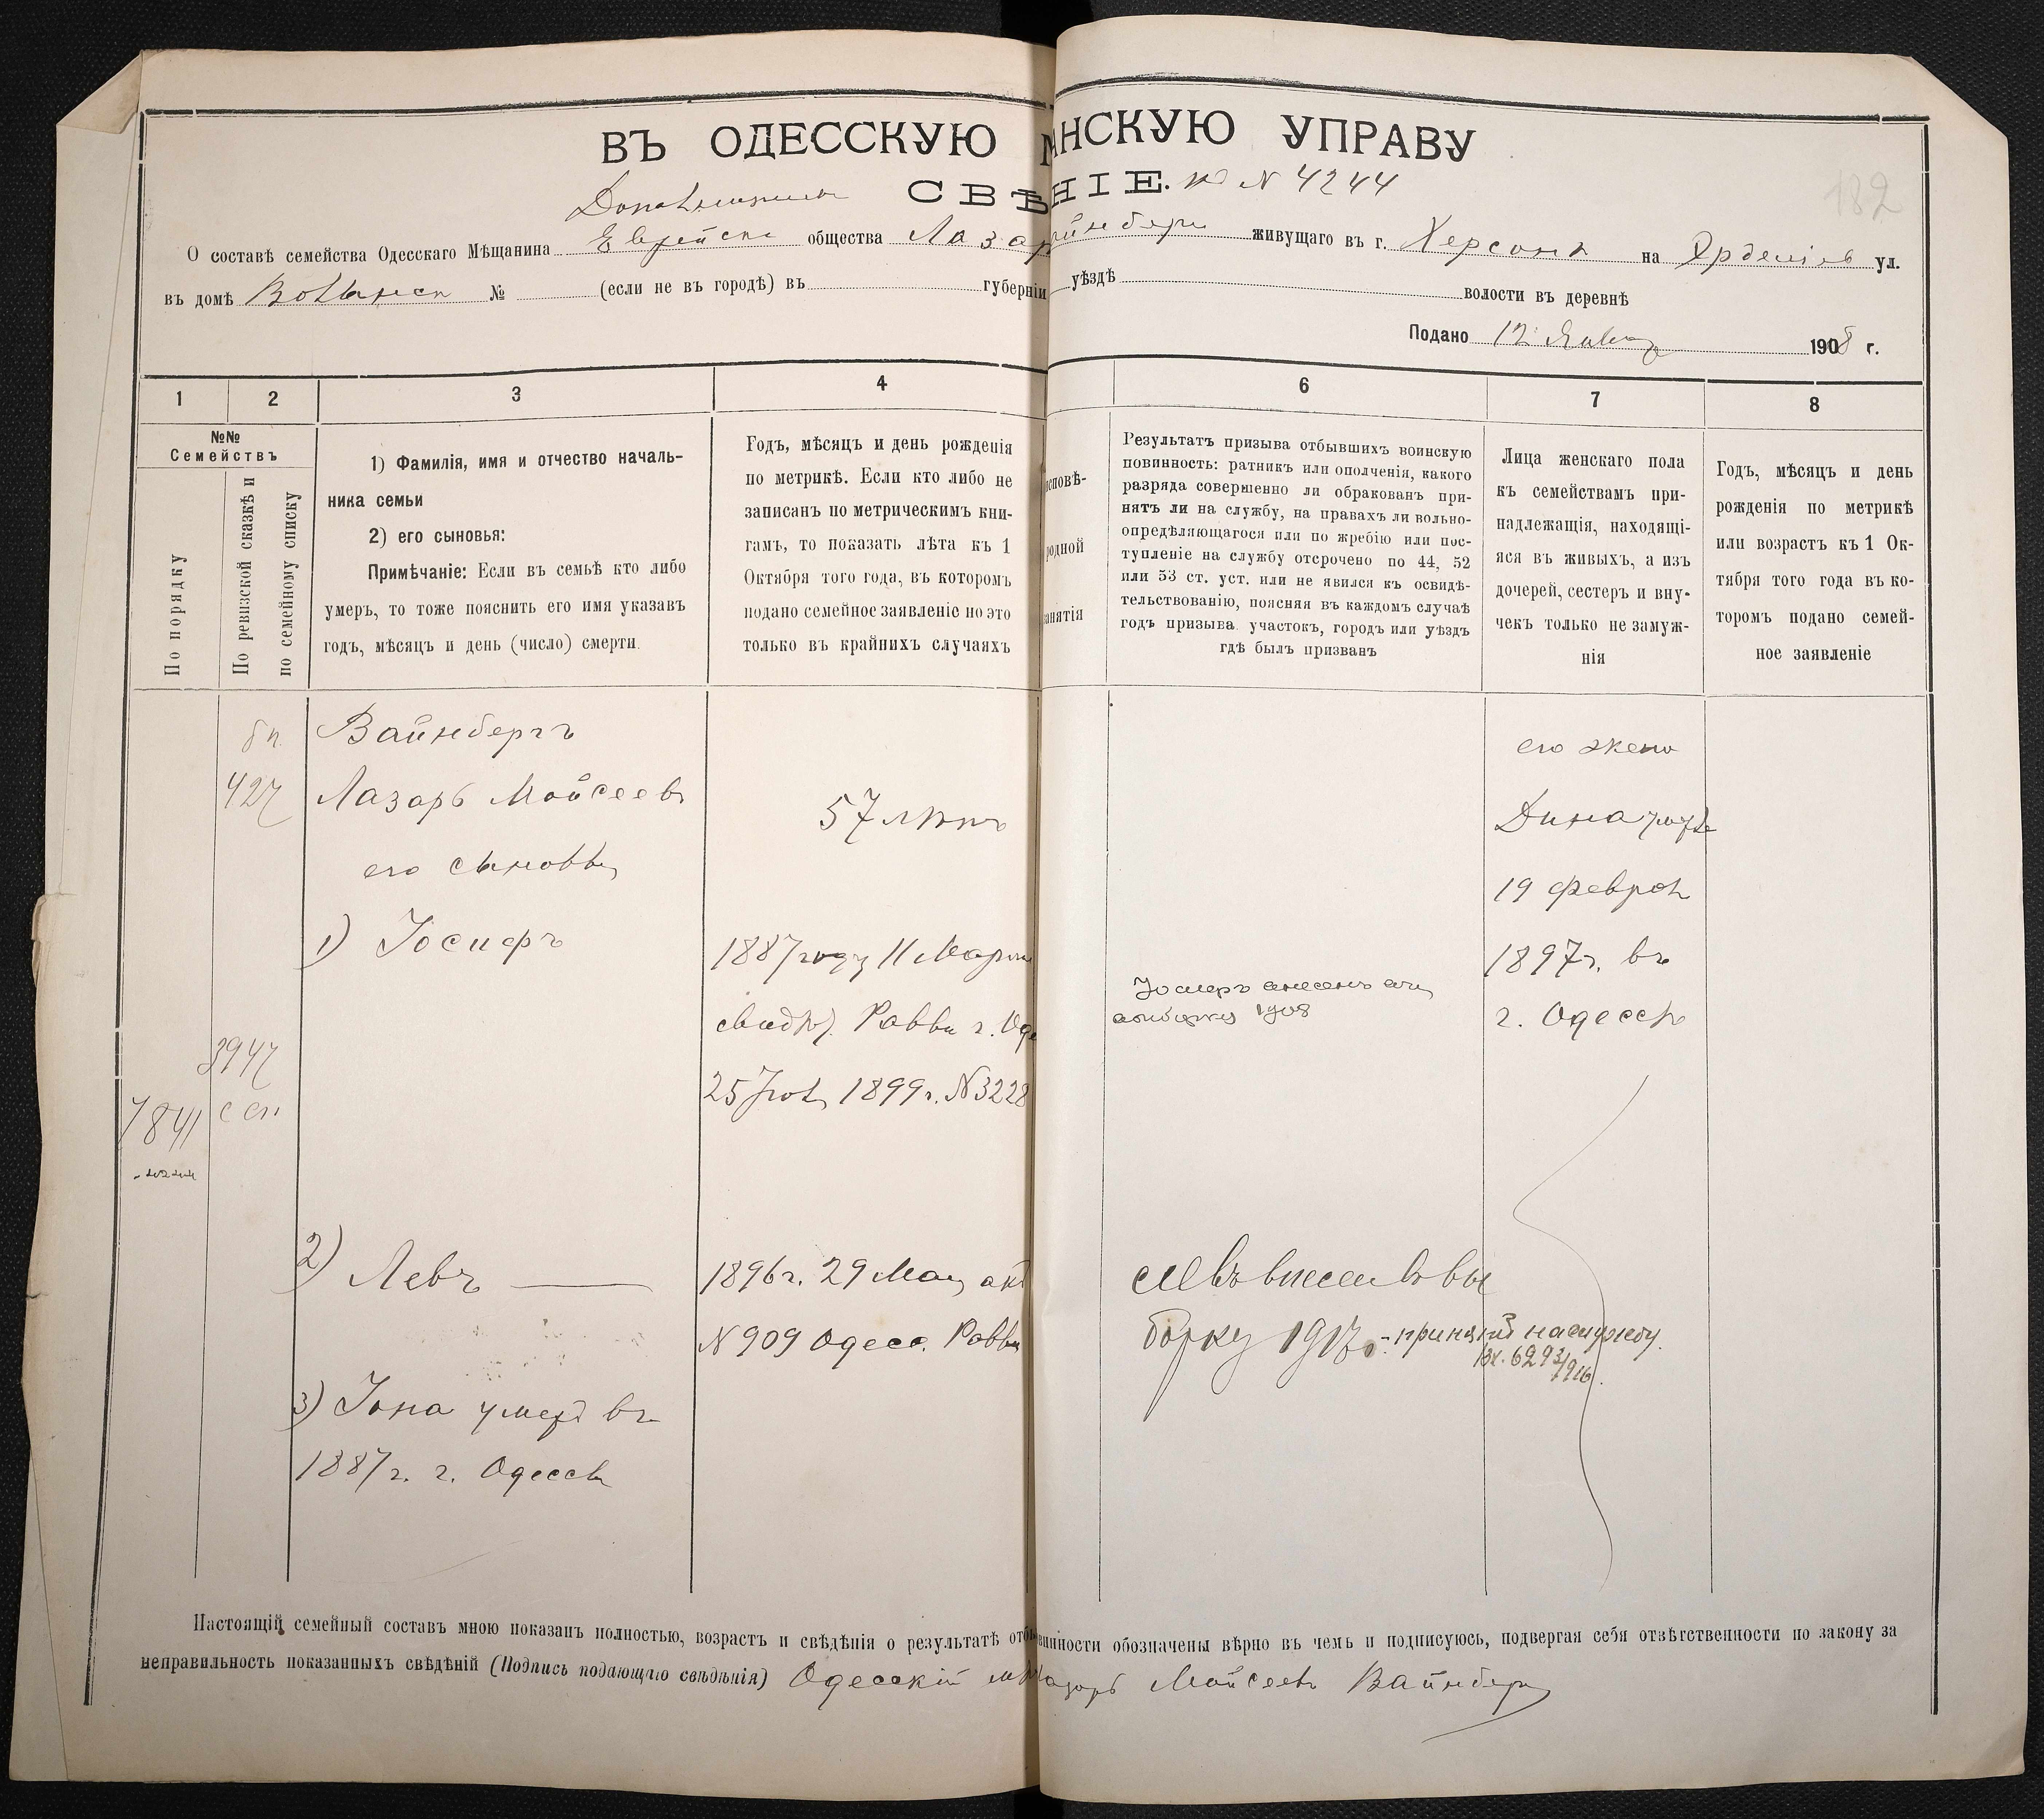 ВЪ ОДЕССКУЮ АНСКУЮ УПРАВУ
СВѢНІЕ. № 4244
182
О составѣ семейства Одесскаго Мѣщанина Еврейск общества Лазар йнберг живущаго въ г. Херсонѣ на ул.
въ домѣ № (если не въ городѣ) въ губерніи уѣздѣ волости въ деревнѣ
Подано 12 Январ 1908 г.
1 2 3 4 6 7 8
№№
Семействъ
По порядку
По ревизской сказкѣ и
по семейному списку
1) Фамилія, имя и отчество началь-
ника семьи
2) его сыновья:
Примѣчаніе: Если въ семьѣ кто либо
умеръ, то тоже пояснить его имя указавъ
годъ, мѣсяцъ и день (число) смерти.
Годъ, мѣсяцъ и день рожденія
по метрикѣ. Если кто либо не
записанъ по метрическимъ кни-
гамъ, то показать лѣта къ 1
Октября того года, въ которомъ
подано семейное заявленіе но это
только въ крайнихъ случаяхъ
исповѣ-
родной
занятія
Результатъ призыва отбывшихъ воинскую
повинность: ратникъ или ополченія, какого
разряда совершенно ли обракованъ при-
нятъ ли на службу, на правахъ ли вольно-
опредѣляющагося или по жребію или пос-
тупленіе на службу отсрочено по 44, 52
или 53 ст. уст. или не явился къ освидѣ-
тельствованію, поясняя въ каждомъ случаѣ
годъ призыва участокъ, городъ или уѣздъ
гдѣ былъ призванъ
Лица женскаго пола
къ семействамъ при-
надлежащія, находящі-
яся въ живыхъ, а изъ
дочерей, сестеръ и вну-
чекъ только не замуж-
нія
Годъ, мѣсяцъ и день
рожденія по метрикѣ
или возрастъ къ 1 Ок-
тября того года въ ко-
торомъ подано семей-
ное заявленіе
427
Вайнбергъ
Лазарь Мойсеевъ
57 лѣтъ
его сыновья
1) Іосифъ
1887 году 11 Март
свидѣт. Равви г. Оде
25 Іюля 1899 г. № 3228
3947
7841
2) Левъ
1896 г. 29 Мая акт
№ 909 Одесс. Равви
3) Іона умеръ въ
1887 г. г. Одессѣ
Іосифъ внесенъ въ
1908
Левъ внесенъ въ вы
борку 1917 г. - принятъ на службу.
Вх. 6293/916.
его жена
Дина умерла
19 феврал
1897 г. въ
г. Одессѣ
Настоящій семейный составъ мною показанъ полностью, возрастъ и свѣдѣнія о результатѣ отб винности обозначены вѣрно въ чемъ и подписуюсь, подвергая себя отвѣтственности по закону за
неправильность показанныхъ свѣдѣній (Подпись подающаго свѣдѣнія) Одесскій мѣ азарь Мойсеевъ Вайнберг